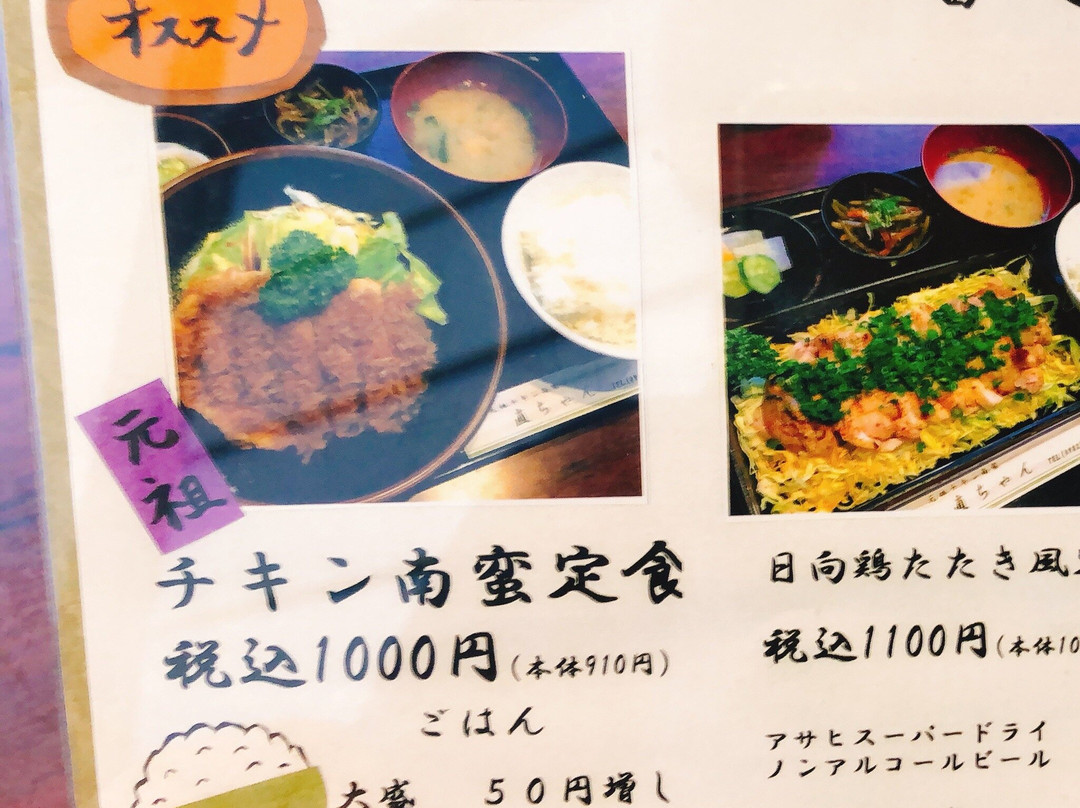 オススメ
直ちゃん
直ちゃん
元祖
チキン南蛮定食
税込1000円(本体910円)
ごはん
大盛 50円増し
日向鶏たたき風
税込1100円(本体10
アサヒスーパードライ
ノンアルコールビール